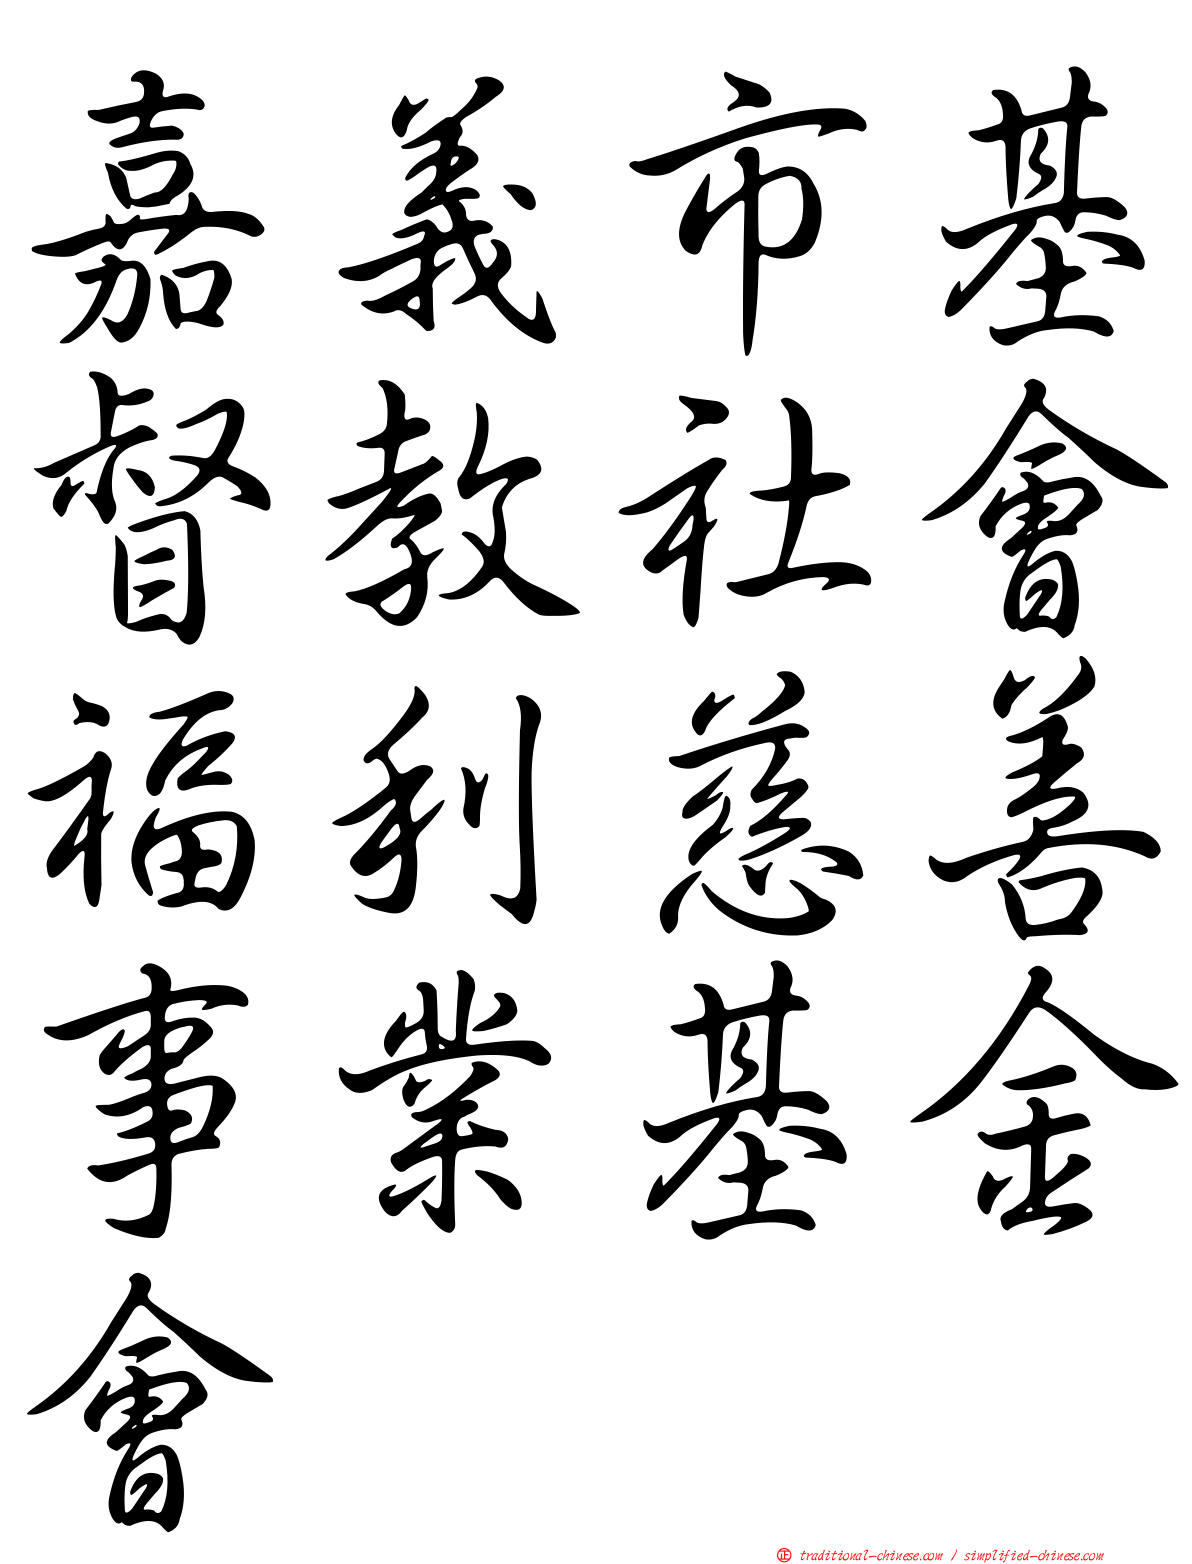 嘉義市基
督教社會
福利慈善
事業基金
會
正 traditional-chinese.com / simplified-chinese.com